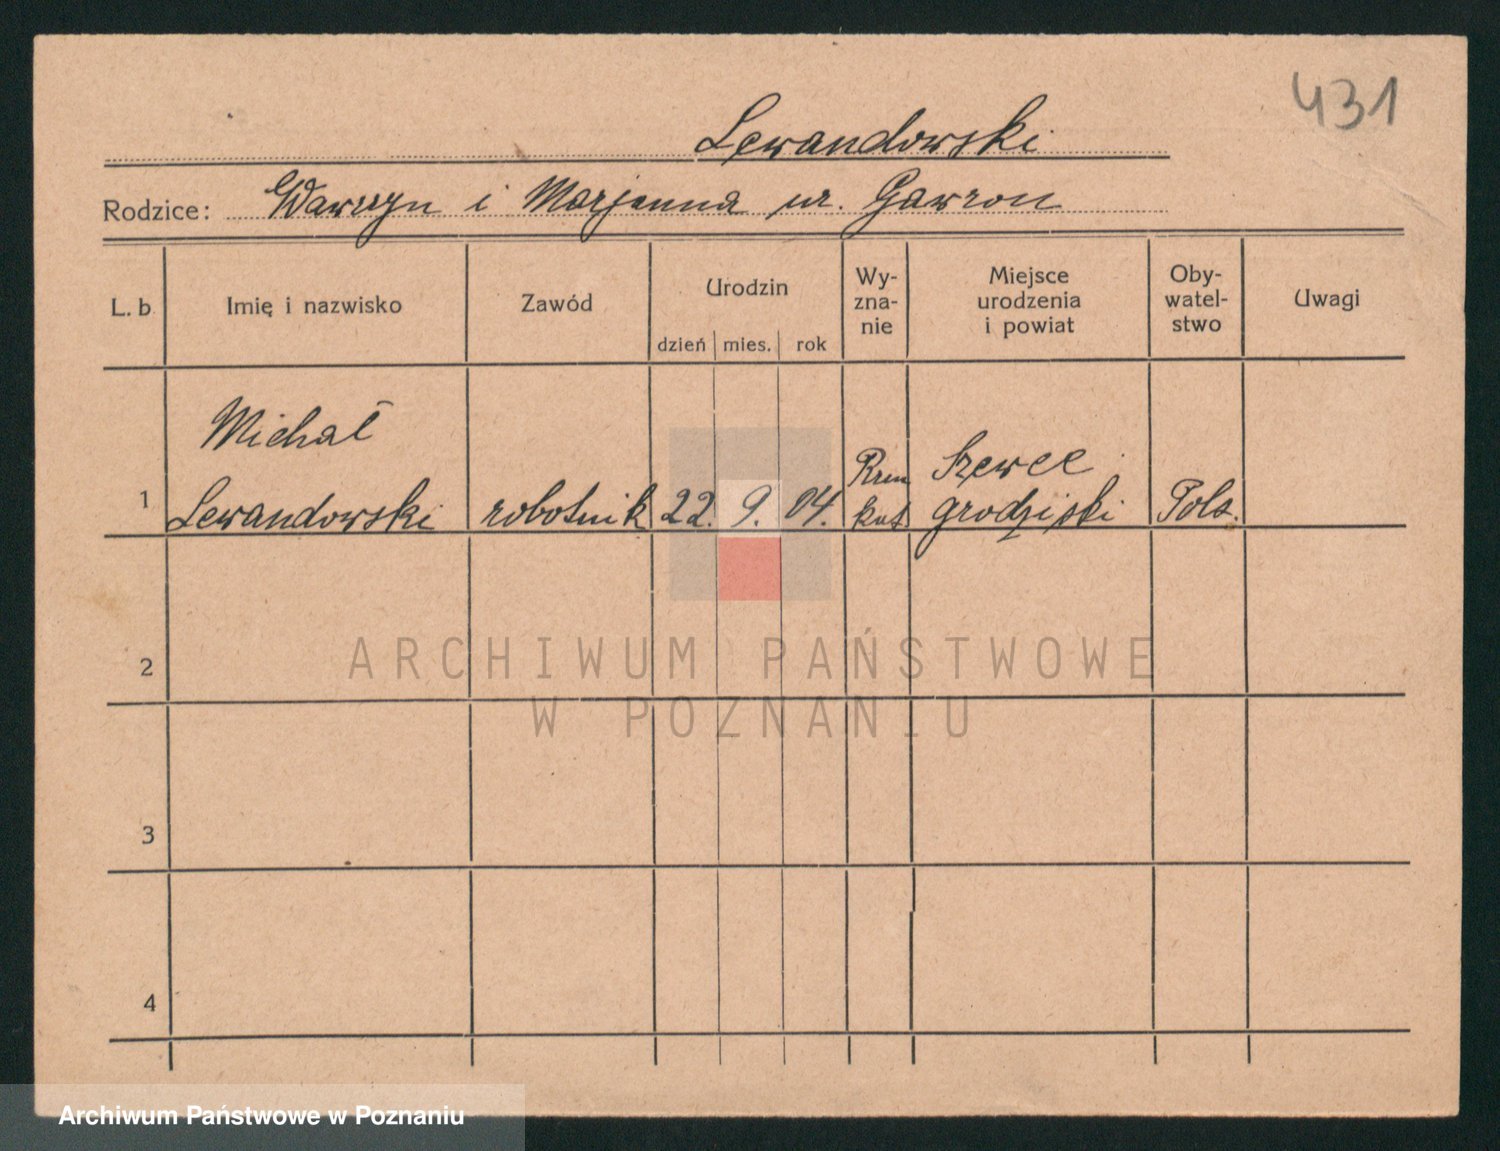 431
Lewandowski
Rodzice: Wawrzyn i Marjanna ur. Gawron
L. b. Imię i nazwisko Zawód Urodzin dzień mies. rok Wy-
zna-
nie Miejsce
urodzenia
i powiat Oby-
watel-
stwo Uwagi
Michał
1 Lewandowski robotnik 22. 9. 04. Rzm
kat Szewce
grodziski Pols.
2
3
4
ARCHIWUM PAŃSTWOWE
W POZNANIU
Archiwum Państwowe w Poznaniu